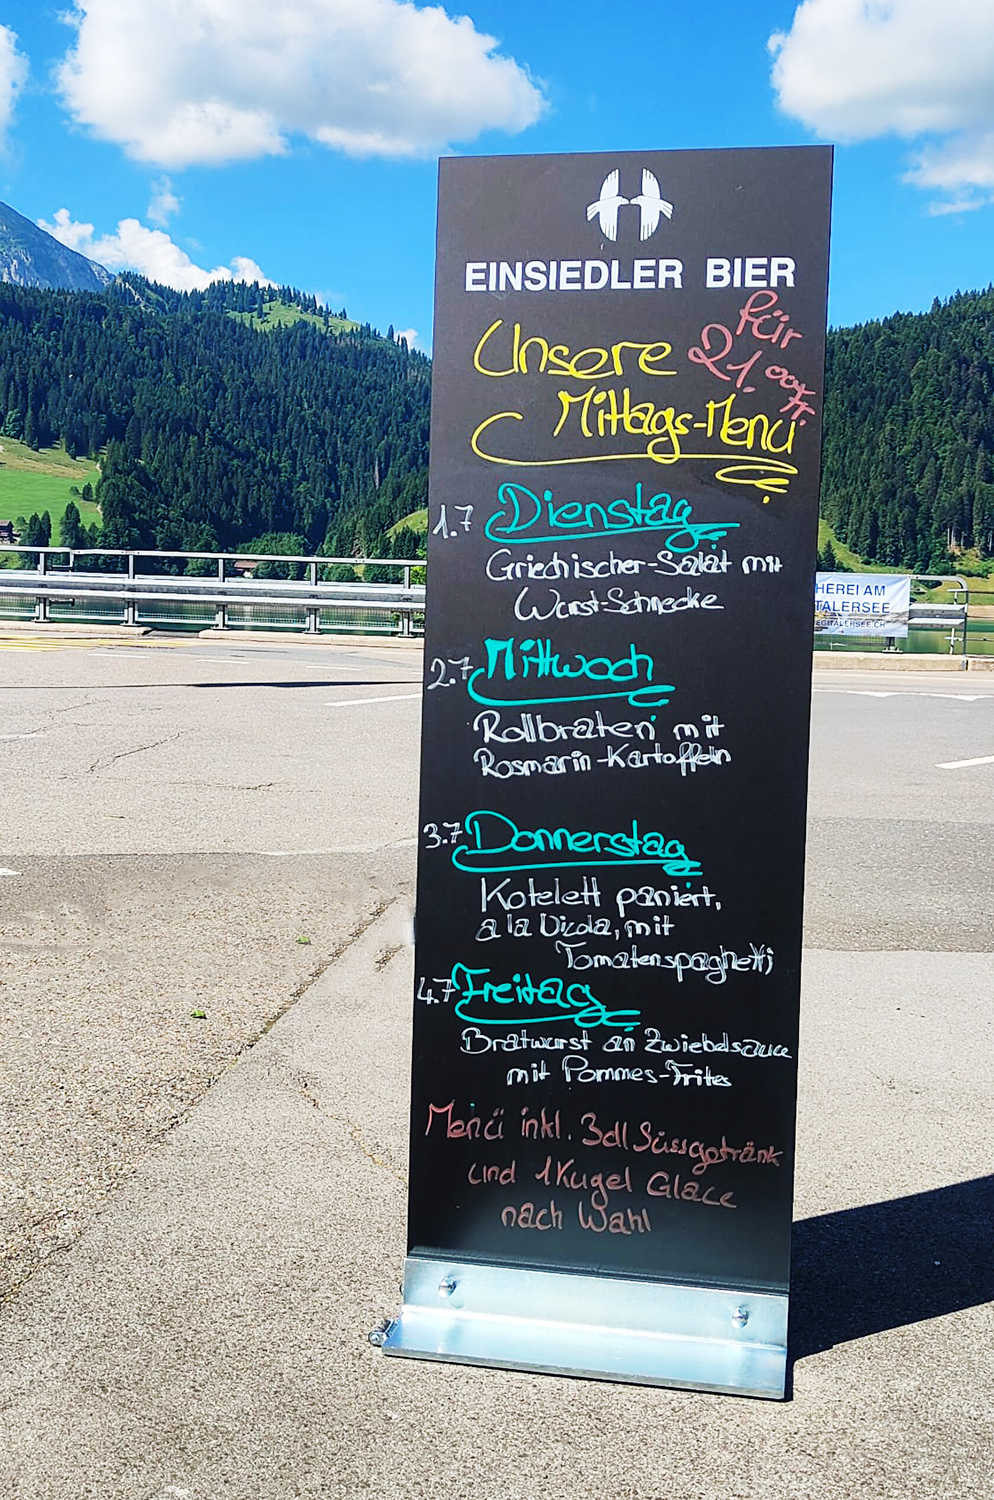 EINSIEDLER BIER
für
21.00 Fr.
Unsere
Mittags-Menü
1.7 Dienstag
Griechischer-Salat mit
Wurst-Schnecke
2.7 Mittwoch
Rollbraten mit
Rosmarin-Kartoffeln
3.7 Donnerstag
Kotelett paniert,
a la mit
Tomatenspaghetti
4.7 Freitag
Bratwurst an Zwiebelsauce
mit Pommes-Frites
Menü inkl. 3dl Süssgetränk
und 1 Kugel Glace
nach Wahl
HEREI AM
TALERSEE